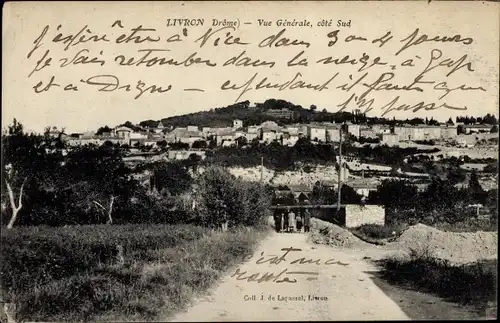 LIVRON Drôme) — Vue Générale, côté Sud
J'espère être à Nice dans 3 ou 4 jours
je vais retomber dans la neige à Gap
et à Digne - cependant il faut
que j'y passe
c'est ma
route
Coll. J. de Laparral, Livron